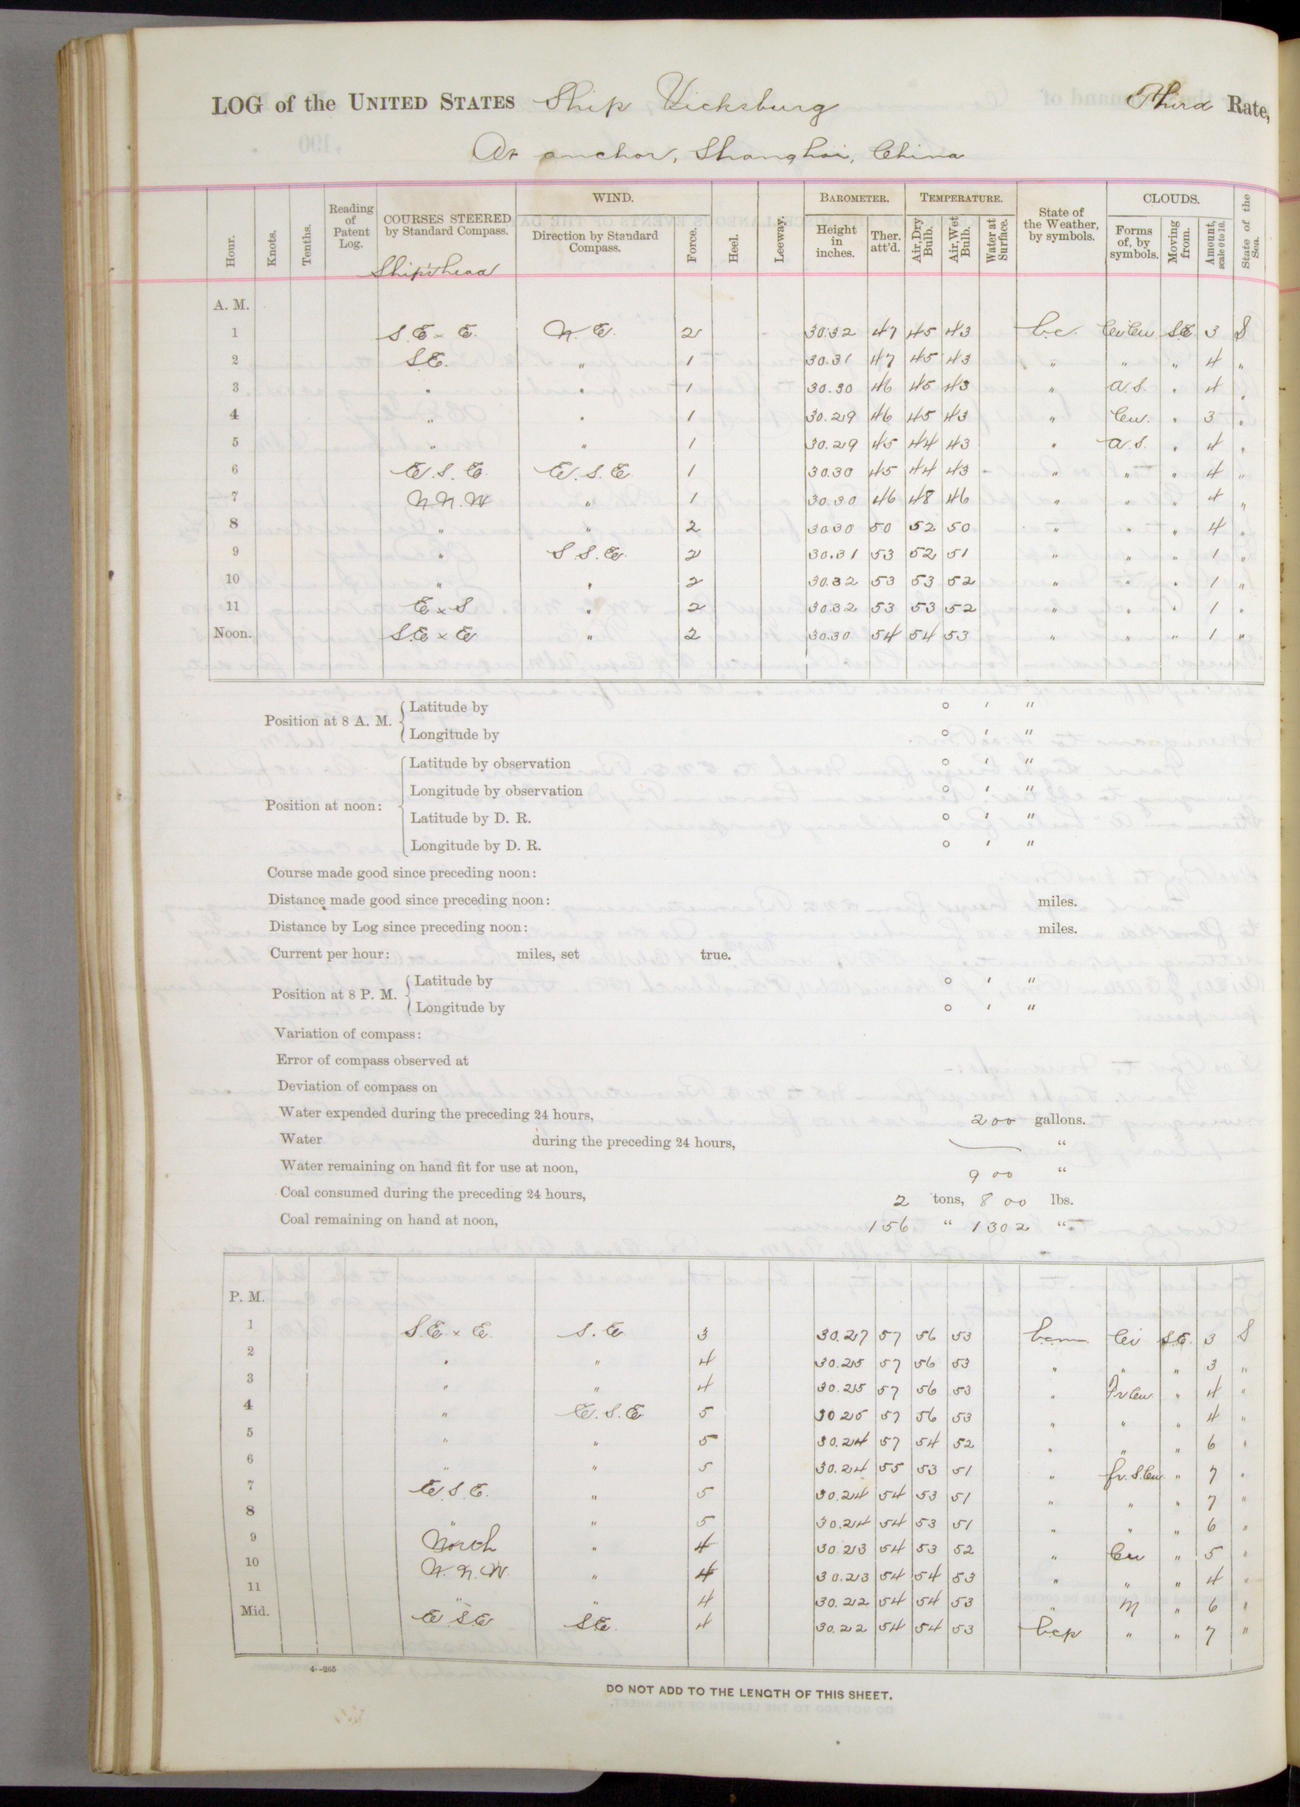 LOG of the UNITED STATES Ship Vicksburg Third Rate,
At anchor, Shanghai, China
Hour. Knots. Tenths. Reading of Patent Log. COURSES STEERED by Standard Compass. WIND. Direction by Standard Compass. Force. Heel. Leeway. BAROMETER. Height in inches. Ther. att'd. TEMPERATURE. Air, Dry Bulb. Air, Wet Bulb. Water at Surface. State of the Weather, by symbols. CLOUDS. Forms of, by symbols. Moving from. Amount, scale 0 to 10. State of the Sea.
Ship's head
A. M.
1 S.E. x E. N.E. 2 30.32 47 45 43 b.c. Ci Cu S.E. 3 S
2 S.E. " 1 30.31 47 45 43 " " " 4 "
3 " " 1 30.30 46 45 43 " A.S. " 4 "
4 " " 1 30.29 46 45 43 " Cu. " 3 "
5 " " 1 30.29 45 44 43 " A.S. " 4 "
6 E.S.E. E.S.E. 1 30.30 45 44 43 " " " 4 "
7 N.N.W " 1 30.30 46 48 46 " " " 4 "
8 " " 2 30.30 50 52 50 " " " 4 "
9 " S.S.E. 2 30.31 53 52 51 " " " 1 "
10 " " 2 30.32 53 53 52 " " " 1 "
11 E x S " 2 30.32 53 53 52 " " " 1 "
Noon. S.E x E " 2 30.30 54 54 53 " " " 1 "
Position at 8 A. M. Latitude by ° ' "
Longitude by ° ' "
Position at noon: Latitude by observation ° ' "
Longitude by observation ° ' "
Latitude by D. R. ° ' "
Longitude by D. R. ° ' "
Course made good since preceding noon:
Distance made good since preceding noon: miles.
Distance by Log since preceding noon: miles.
Current per hour: miles, set true.
Position at 8 P. M. Latitude by ° ' "
Longitude by ° ' "
Variation of compass:
Error of compass observed at
Deviation of compass on
Water expended during the preceding 24 hours, 200 gallons.
Water during the preceding 24 hours, "
Water remaining on hand fit for use at noon, 900 "
Coal consumed during the preceding 24 hours, 2 tons, 800 lbs.
Coal remaining on hand at noon, 156 " 1302 "
P. M.
1 S.E. x E. S.E 3 30.27 57 56 53 bcm Ci S.E. 3 S
2 " " 4 30.25 57 56 53 " " " 3 "
3 " " 4 30.25 57 56 53 " Fr Cu " 4 "
4 " E.S.E 5 30.25 57 56 53 " " " 4 "
5 " " 5 30.24 57 54 52 " " " 6 "
6 " " 5 30.24 55 53 51 " fr. S. Cu " 7 "
7 E.S.E. " 5 30.24 54 53 51 " " " 7 "
8 " " 5 30.24 54 53 51 " " " 6 "
9 North " 4 30.23 54 53 52 " Cu " 5 "
10 N.N.W " 4 30.23 54 54 53 " " " 4 "
11 " " 4 30.22 54 54 53 " N " 6 "
Mid. E.S.E S.E. 4 30.22 54 54 53 bcp " " 7 "
4--265
DO NOT ADD TO THE LENGTH OF THIS SHEET.